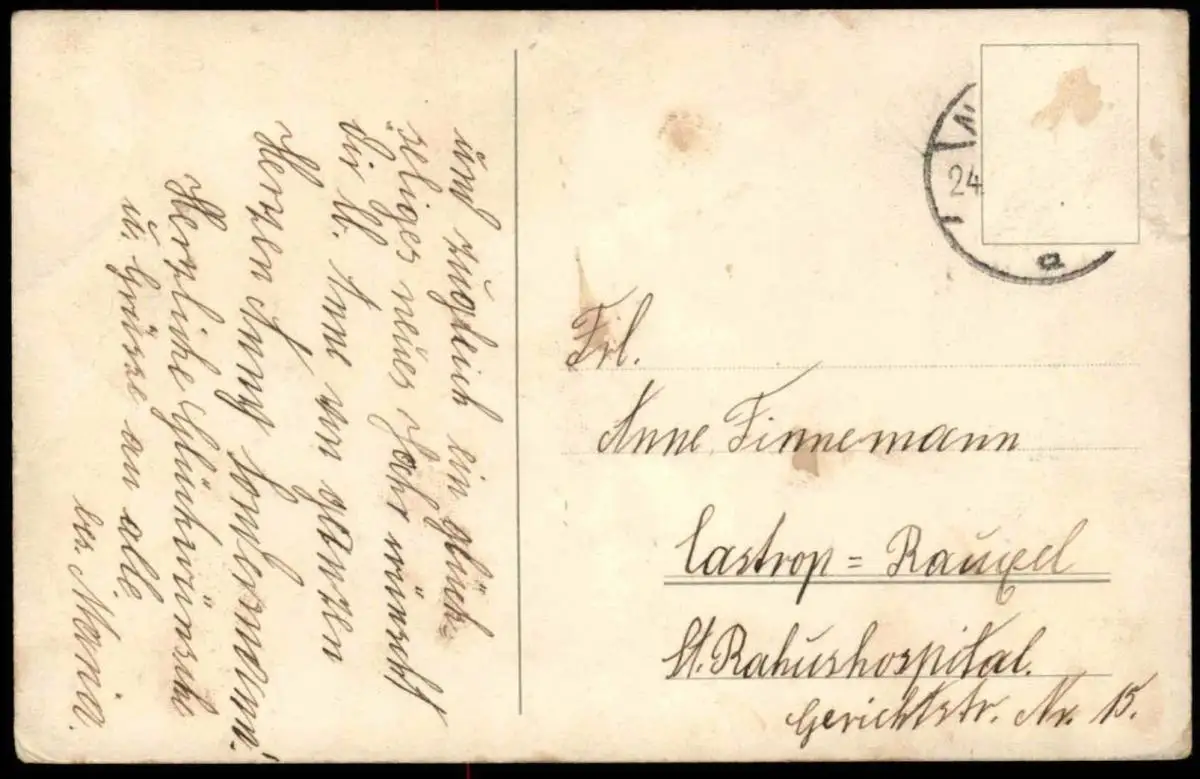 und zugleich ein glück-
seliges neues Jahr wünscht
dir lb. Anne von ganzen
Herzen Anny Sondermann.
Herzliche Glückwünsche
u. Grüsse an alle.
bes. Maria.
24
a
Frl.
Anne Finnemann
Castrop = Rauxel
St. Rahushospital.
Gerichtstr. Nr. 15.